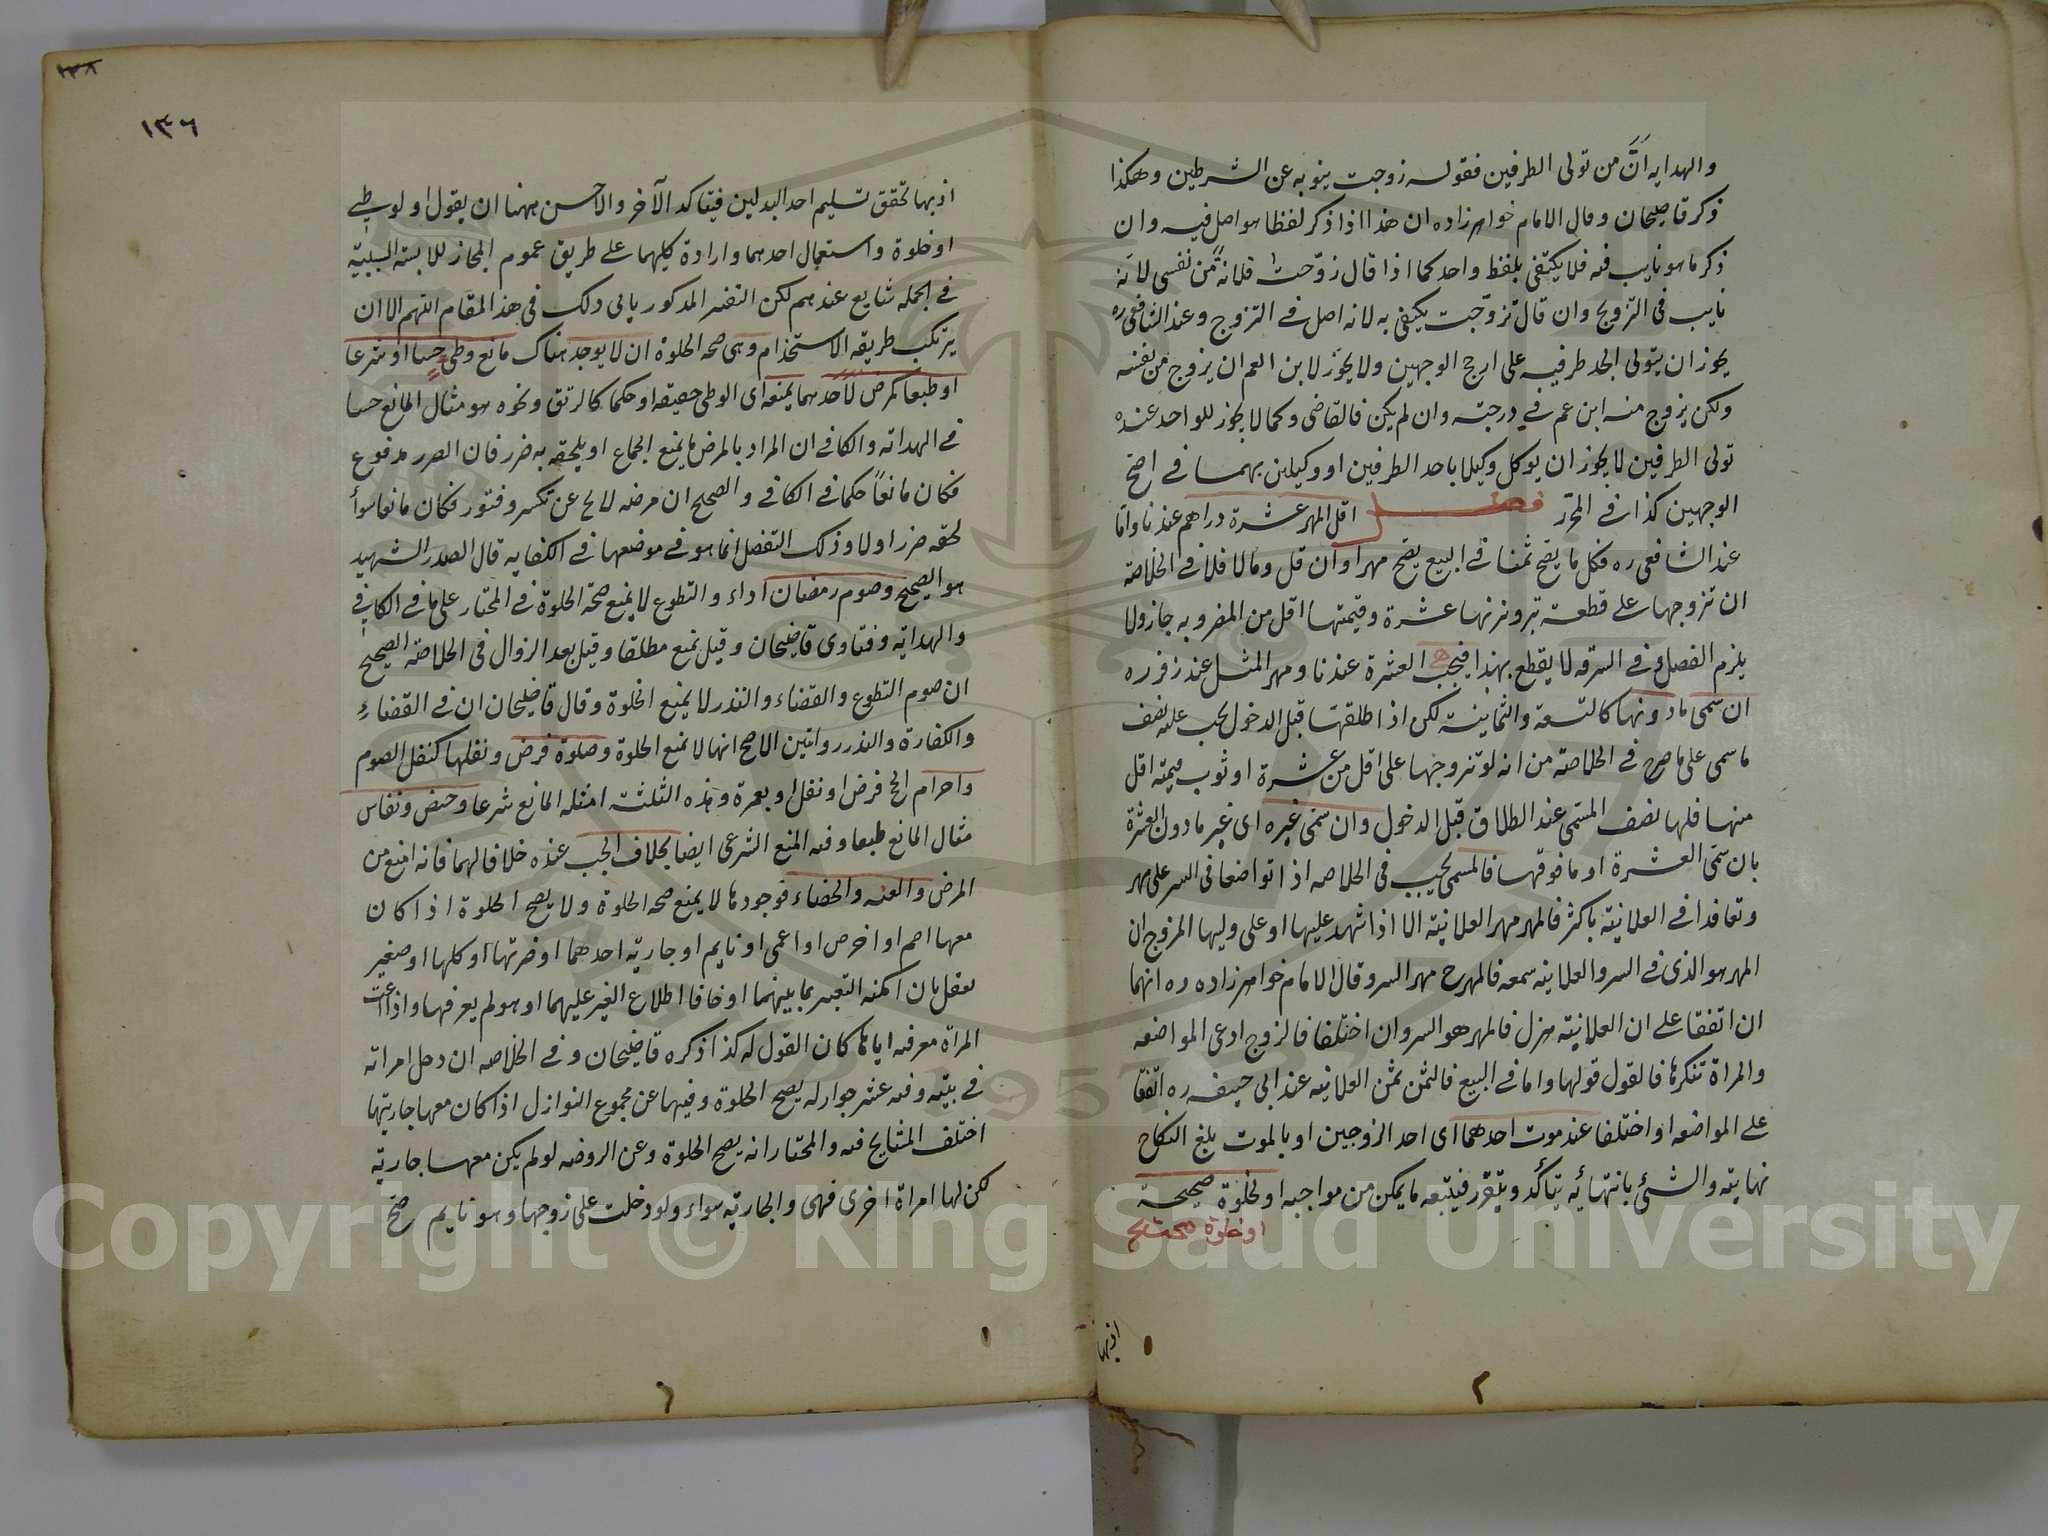 والهداية انّ من تولى الطرفين فقوله زوجت ينوبه عن الشرطين وهكذا
ذكر قاضيخان وقال الامام خواهرزاده ان هذا اذا ذكر لفظا هو اصل فيه وان
ذكر ما هو نايب فيه فلا يكتفى بلفظ واحد كما اذا قال زوّجتُ فلانةً من نفسى لانه
نايب فى التزويج وان قال تزوّجت يكتفى به لانه اصل فى التزوج وعند الشافعى ره
يجوز ان يتولى الجد طرفيه على ارجح الوجهين ولا يجوّز لابن العم ان يزوج من نفسه
ولكن يزوج منه ابن عم فى درجته وان لم يكن فالقاضى وكما لا يجوز للواحد عنده
تولى الطرفين لا يجوز ان يوكل وكيلا باحد الطرفين او وكيلين بهما فى اصح
الوجهين كذا فى المحرّر فصل اقل المهر عشرة دراهم عندنا واما
عند الشافعى ره فكل ما يصح ثمنا فى البيع يصح مهرا وان قل وما لا فلا فى الخلاصة
ان تزوجها على قطعة تبر وزنها عشرة وقيمتها اقل من المضروبه جاز ولا
يلزم الفصل وفى السرقه لا يقطع بهذا فيجب العشرة عندنا ومهر المثل عند زفر ره
ان سمى ما دونها كالتسعة والثمانية لكن اذا طلقها قبل الدخول يجب عليه نصف
ما سمى على ما صرح فى الخلاصة من انه لو تزوجها على اقل من عشرة او ثوب قيمته اقل
منها فلها نصف المسمى عند الطلاق قبل الدخول وان سمّى غيره اى غير ما دون العشرة
بان سمّى العشرة او ما فوقها فالمسمى يجب فى الخلاصه اذا تواضعا فى السر على مهر
وتعاقدا فى العلانية باكثر فالمهر مهر العلانية الا اذا اشهد عليها او على وليها المزوج ان
المهر هو الذى فى السر والعلانيه سمعه فالمهر ح مهر السر وقال الامام خواهرزاده ره انهما
ان اتفقا على ان العلانية هزل فالمهر هو السر وان اختلفا فالزوج ادعى المواضعه
والمراة تنكرها فالقول قولها واما فى البيع فالثمن ثمن العلانيه عند ابى حنيفه ره اتفقا
على المواضعه او اختلفا عند موت احدهما اى احد الزوجين او بالموت بلغ النكاح
نهايته والشئ بانتهائه يتأكّد ويتقرّر فيتبعه ما يمكن من مواجبه او لخلوة صحيحة
او خلوة صحت ح
اذ بها
١٣٦
اذ بها تحقق تسليم احد البدلين فيتاكد الآخر والاحسن ههنا ان يقول او لوطئ
او خلوة واستعمال احدهما وارادة كليهما على طريق عموم المجاز للابسته السببية
فى الجمله شايع عندهم لكن التفسير المذكور يابى ذلك فى هذا المقام اللهم الا ان
يرتكب طريقه الاستخدام وهى صحه الخلوة ان لا يوجد هناك مانع وطى حسا او شرعا
او طبعا كمرض لاحدهما يمنعه اى الوطى حقيقه او حكما كالرتق ونحوه هو مثال المانع حسا
فى الهدايه والكافى ان المراد بالمرض ما يمنع الجماع او يلحقه به ضرر فان الضرر مدفوع
فكان مانعاً حكما فى الكافى والصحيح ان مرضه لا يخ عن تكسر وفتور فكان مانعا سواء
لحقه ضرر اولا وذلك التفصيل انما هو فى موضعها فى الكفايه قال الصدر الشهيد
هو الصحيح وصوم رمضان اداء والتطوع لا يمنع صحة الخلوة فى المختار على ما فى الكافى
والهداية وفتاوى قاضيخان وقيل تمنع مطلقا وقيل بعد الزوال فى الخلاصة الصحيح
ان صوم التطوع والقضاء والنذر لا يمنع الخلوة وقال قاضيخان ان فى القضاء
والكفارة والنذر روايتين الاصح انها لا تمنع الخلوة وصلوة فرض ونفلها كنفل الصوم
واحرام الحج فرض او نفل او بعمرة وهذه الثلثة امثله المانع شرعا وحيض ونفاس
مثال المانع طبعا وفيه المنع الشرعى ايضا بخلاف الجب عنده خلافا لهما فانه امنع من
المرض والعنه والخصاء فوجودها لا يمنع صحه الخلوة ولا يصح الخلوة اذا كان
معها اصم او اخرس او اعمى او نايم او جارية احدهما او ضرتها او كلبها او صغير
يعقل بان امكنه التعبير بما بينهما او خافا اطلاع الغير عليهما او هو لم يعرفها واذا ادعت
المراة معرفه اياها كان القول له كذا ذكره قاضيخان وفى الخلاصه ان دخل امراته
فى بيته وفيه عشر جوار له يصح الخلوة وفيها عن مجموع النوازل اذا كان معها جاريتها
اختلف المشايخ فيه والمختار انه يصح الخلوة وعن الروضه لو لم يكن معها جارية
لكن لها امراة اخرى فهى والجارية سواء ولو دخلت على زوجها وهو نايم صح
Copyright © King Saud University
1957